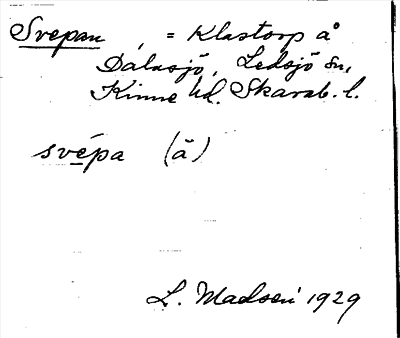 Svepan, = Klastorp å
Dalasjö, Ledsjö sn,
Kinne hd. Skarab. l.
svépa (å)
L. Madsén 1929